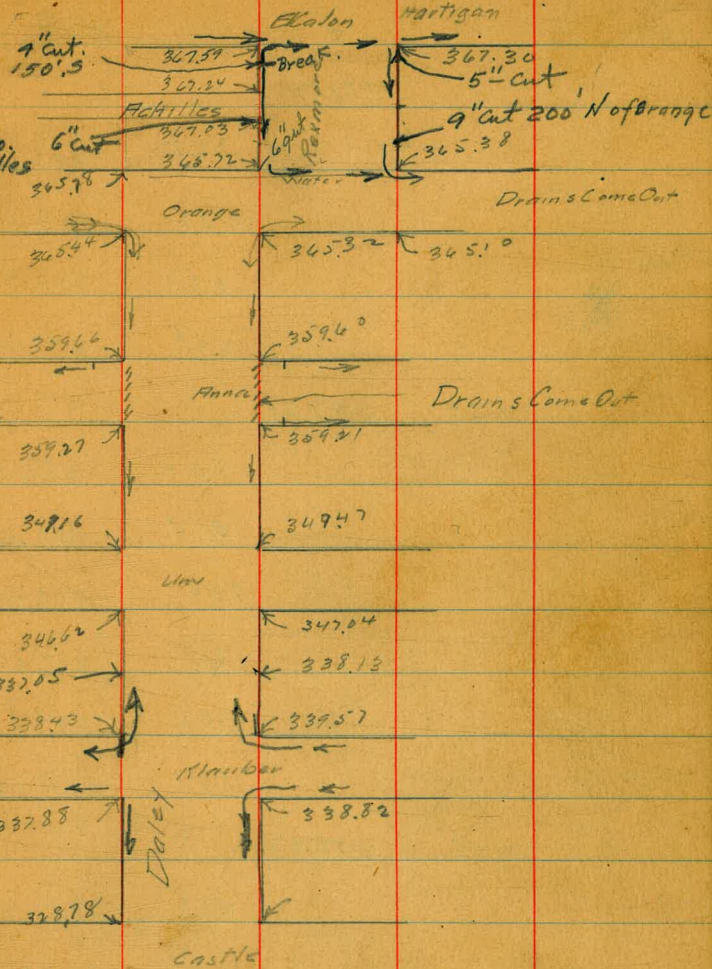 Ekalon Hartigan
4" Cut.
150'.S
367.59 Brea. 367.30
5" Cut
367.24
Achilles
Rexmore
6" Cut 367.03 9" Cut 200' N of Orange
365.72 365.38
Water
365.78
Drains Come Out
Orange
365.44 365.32 365.10
359.66 359.60
Anna Drains Come Out
359.27 359.21
349.16 349.47
346.62 347.04
337.05 338.13
338.43 339.57
Klauber
337.88 338.82
Daley
328.78
Castle